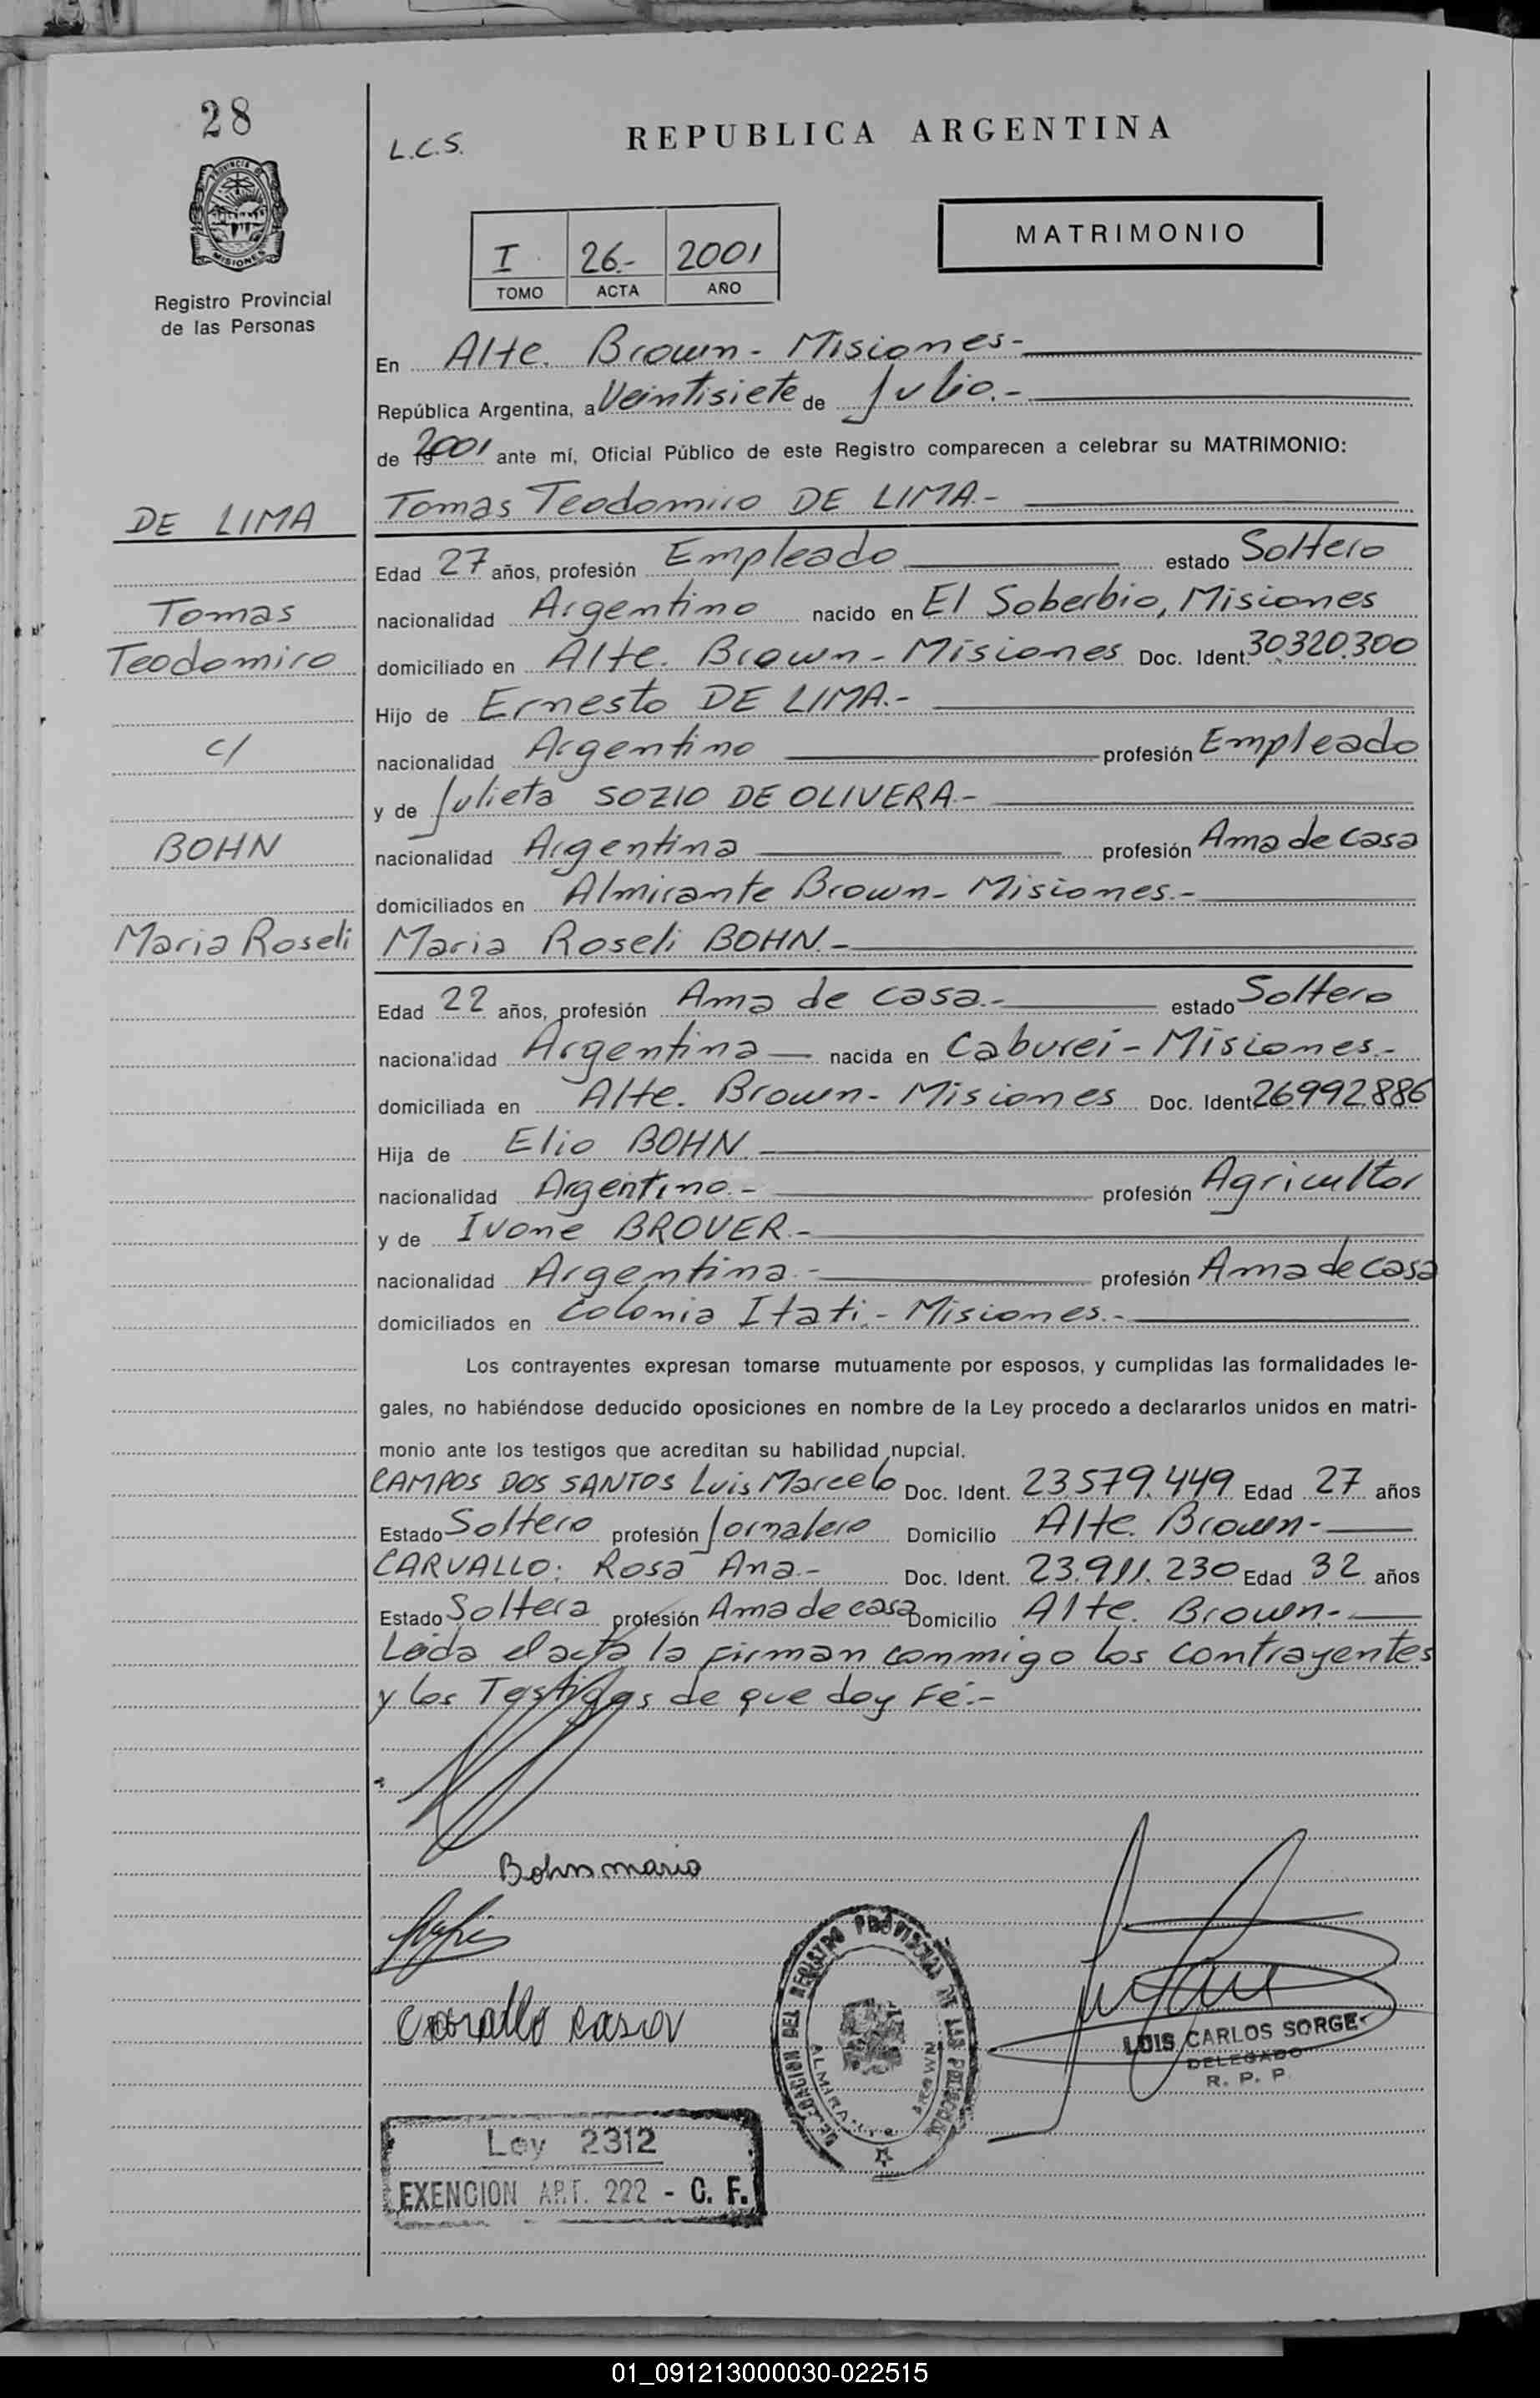 28
L.C.S.
REPUBLICA ARGENTINA
PROVINCIA DE
MISIONES
Registro Provincial
de las Personas
I 26.- 2001
TOMO ACTA AÑO
MATRIMONIO
En Alte. Brown - Misiones-
República Argentina, a Veintisiete de Julio.-
de 2001 ante mí, Oficial Público de este Registro comparecen a celebrar su MATRIMONIO:
DE LIMA
Tomas Teodomiro DE LIMA.-
Edad 27 años, profesión Empleado estado Soltero
Tomas
nacionalidad Argentino nacido en El Soberbio, Misiones
Teodomiro
domiciliado en Alte. Brown - Misiones Doc. Ident. 30.320.300
Hijo de Ernesto DE LIMA.-
c/
nacionalidad Argentino profesión Empleado
y de Julieta SOZIO DE OLIVERA.-
BOHN
nacionalidad Argentina profesión Ama de casa
domiciliados en Almirante Brown - Misiones.-
Maria Roseli
Maria Roseli BOHN.-
Edad 22 años, profesión Ama de casa.- estado Soltero
nacionalidad Argentina nacida en Caburei - Misiones.-
domiciliada en Alte. Brown - Misiones Doc. Ident. 26992.886
Hija de Elio BOHN.
nacionalidad Argentino.- profesión Agricultor
y de Ivone BROVER.-
nacionalidad Argentina.- profesión Ama de casa
domiciliados en Colonia Itati.- Misiones.-
Los contrayentes expresan tomarse mutuamente por esposos, y cumplidas las formalidades le-
gales, no habiéndose deducido oposiciones en nombre de la Ley procedo a declararlos unidos en matri-
monio ante los testigos que acreditan su habilidad nupcial.
CAMPOS DOS SANTOS Luis Marcelo Doc. Ident. 23.579.449 Edad 27 años
Estado Soltero profesión Jornalero Domicilio Alte. Brown.-
CARVALLO: Rosa Ana.- Doc. Ident. 23.911.230 Edad 32 años
Estado Soltera profesión Ama de casa Domicilio Alte. Brown.-
Leida el acta la firman conmigo los contrayentes
y los Testigos de que doy Fé.-
Bohn maria
DELEGACION DEL REGISTRO PROVINCIAL DE LAS PERSONAS
ALMIRANTE BROWN
LUIS CARLOS SORGE
DELEGADO
R. P. P.
Ley 2312
EXENCION ART. 222 - C. F.
01_091213000030-022515